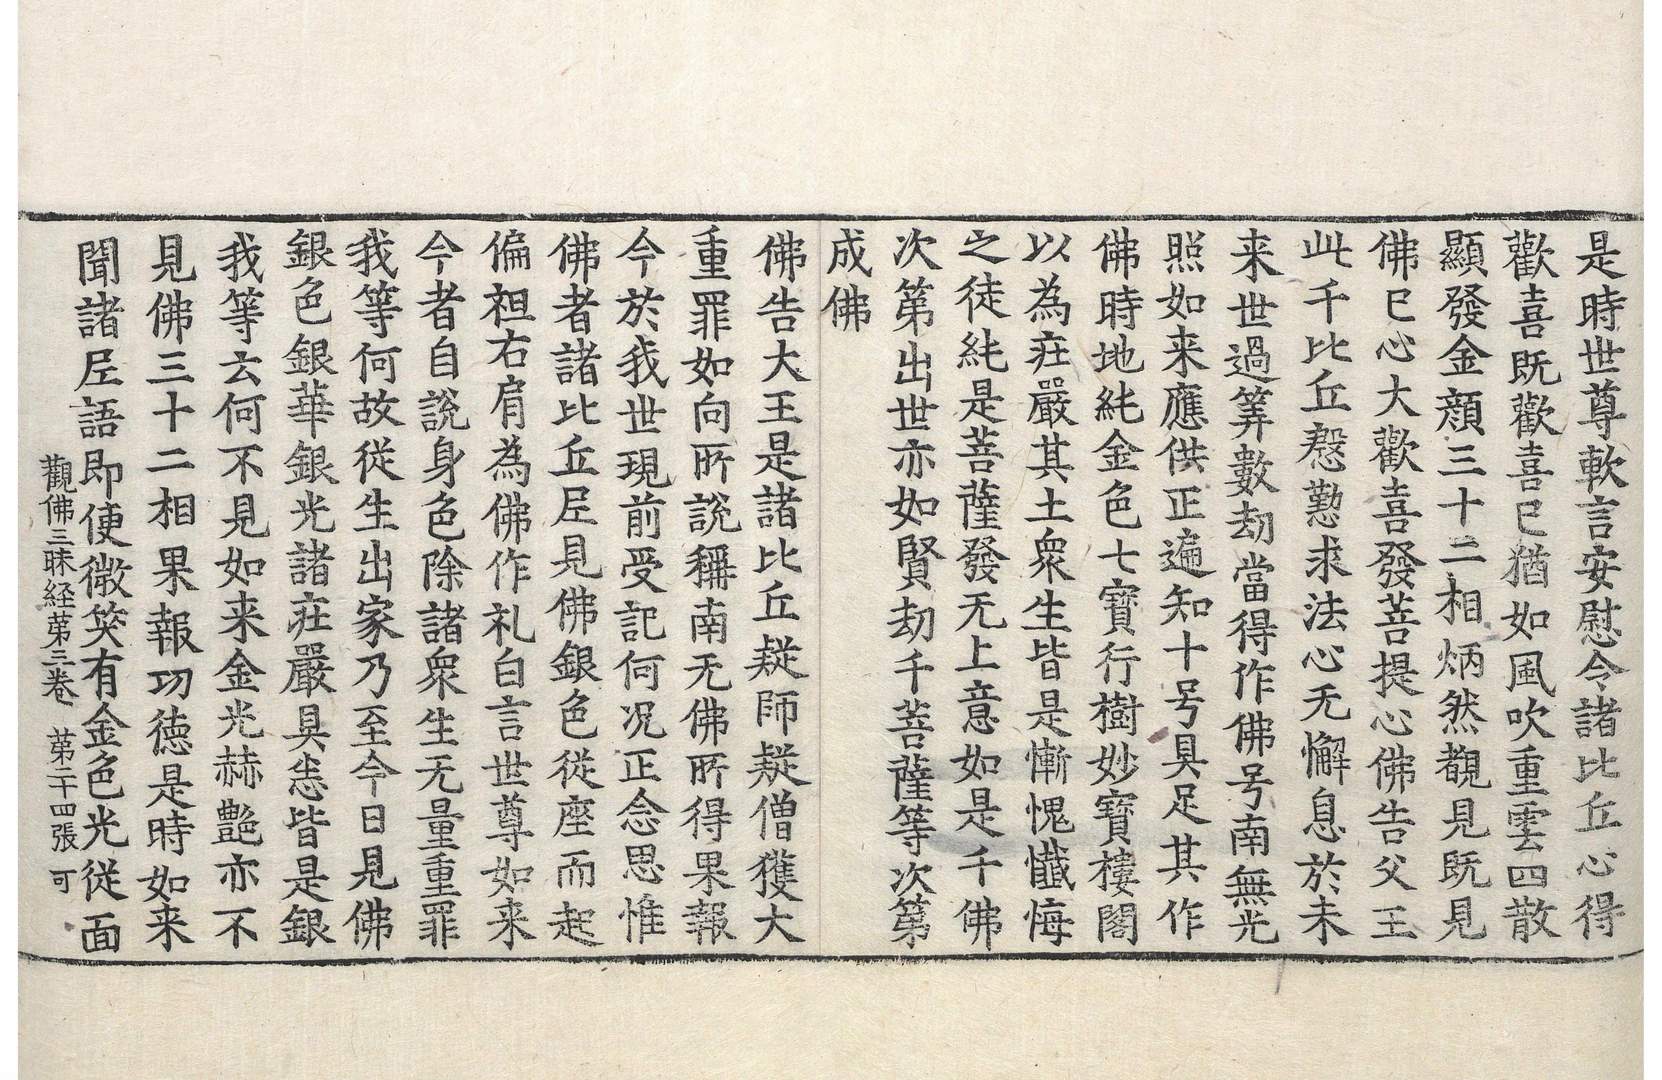 是時世尊軟言安慰令諸比丘心得
歡喜既歡喜已猶如風吹重雲四散
顯發金顔三十二相炳然覩見既見
佛已心大歡喜發菩提心佛告父王
此千比丘慇懃求法心无懈息於未
来世過筭數劫當得作佛号南無光
照如来應供正遍知十号具足其作
佛時地純金色七寶行樹妙寶樓閣
以為莊嚴其土衆生皆是慚愧懺悔
之徒純是菩薩發无上意如是千佛
次第出世亦如賢劫千菩薩等次第
成佛
佛告大王是諸比丘疑師疑僧獲大
重罪如向所說稱南无佛所得果報
今於我世現前受記何况正念思惟
佛者諸比丘尼見佛銀色從座而起
偏袒右肩為佛作礼白言世尊如来
今者自說身色除諸衆生无量重罪
我等何故從生出家乃至今日見佛
銀色銀華銀光諸莊嚴具悉皆是銀
我等云何不見如来金光赫艶亦不
見佛三十二相果報功徳是時如来
聞諸尼語即便微笑有金色光從面
觀佛三昧経第三卷 第二十四張 可